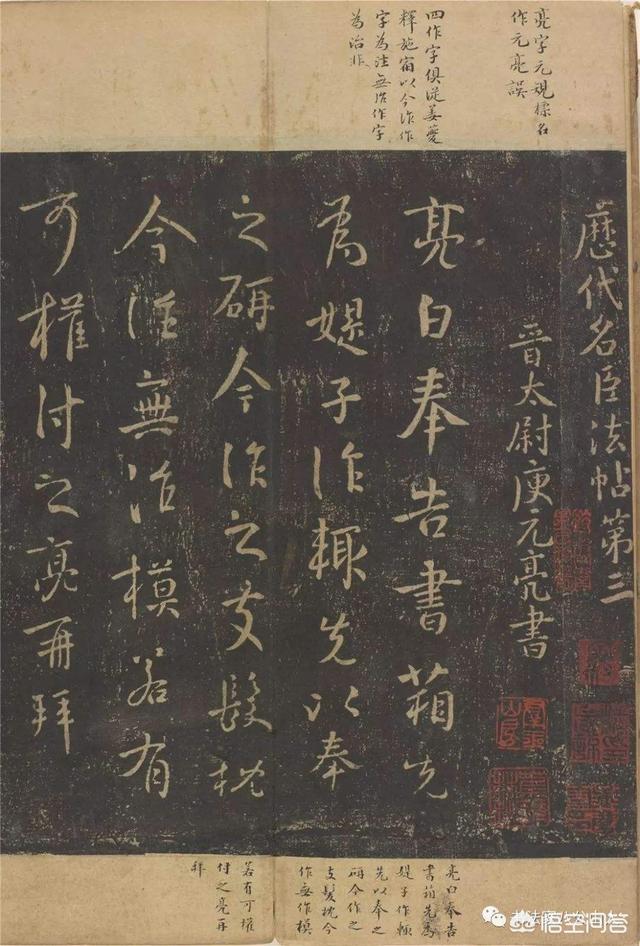 亮字元規標名
作元亮誤
四作字俱從姜夔
釋施宿以今作作
字為注無治作字
為治非
歷代名臣法帖第三
晉太尉庾元亮書
亮白奉告書箱先
為媞子作輒先以奉
之研今作之支髮枕
今作無治模若有
可權付之亮再拜
亮白奉告
書箱先為
媞子作輒
先以奉之
研今作之
支髮枕今
作無作模
若有可權
付之亮再
拜
悟空问答